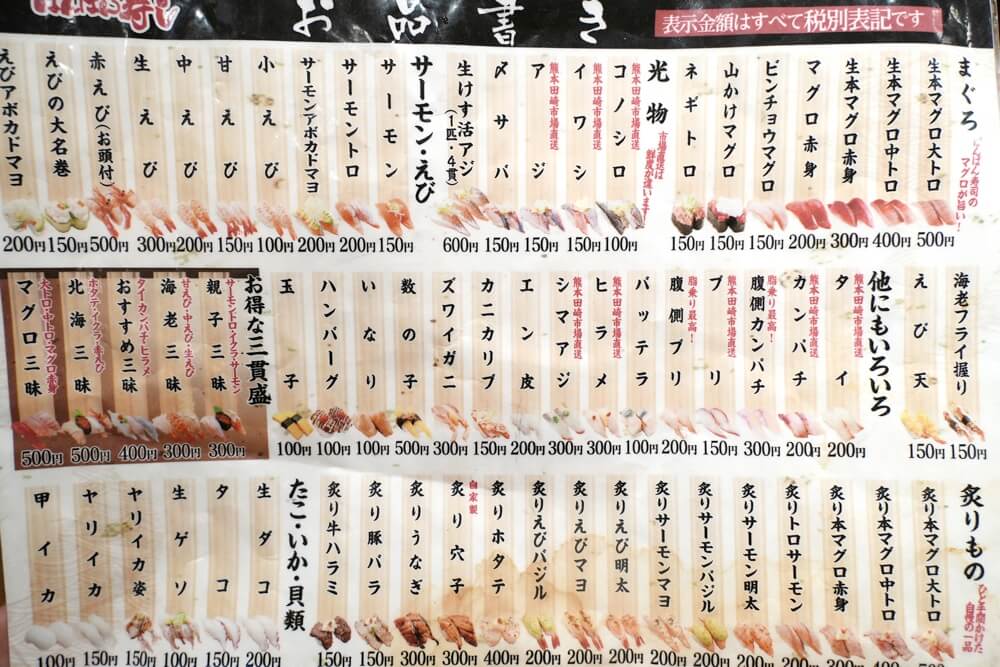 お品書き
表示金額はすべて税別表記です
まぐろ
いんばん寿司のマグロが旨い!
生本マグロ大トロ 500円
生本マグロ中トロ 400円
生本マグロ赤身 300円
マグロ赤身 200円
ビンチョウマグロ 150円
山かけマグロ 150円
ネギトロ 150円
光物
市場直送は鮮度が違います!
熊本田崎市場直送
コノシロ 100円
熊本田崎市場直送
イワシ 150円
熊本田崎市場直送
アジ 150円
〆サバ 150円
生けす活アジ(1匹・4貫) 600円
サーモン・えび
サーモン 150円
サーモントロ 200円
サーモンアボカドマヨ 200円
小えび 100円
甘えび 150円
中えび 200円
生えび 300円
赤えび(お頭付) 500円
えびの大名巻 150円
えびアボカドマヨ 200円
海老フライ握り 150円
えび天 150円
他にもいろいろ
タイ 200円
熊本田崎市場直送
カンパチ 200円
脂乗り最高!
腹側カンパチ 300円
熊本田崎市場直送
ブリ 150円
脂乗り最高!
腹側ブリ 200円
バッテラ 150円
熊本田崎市場直送
ヒラメ 300円
熊本田崎市場直送
シマアジ 300円
エン皮 200円
カニカリブ 150円
ズワイガニ 300円
数の子 500円
いなり 100円
ハンバーグ 100円
玉子 100円
お得な三貫盛
サーモントロ・イクラ・サーモン
親子三昧 300円
甘えび・中えび・生えび
海老三昧 300円
タイ・カンパチ・ヒラメ
おすすめ三昧 400円
ホタテ・イクラ・赤えび
北海三昧 500円
大トロ・中トロ・マグロ赤身
マグロ三昧 500円
炙りもの
ひと手間かけた自慢の一品
炙り本マグロ大トロ
炙り本マグロ中トロ
炙り本マグロ赤身
炙りトロサーモン
炙りサーモン明太
炙りサーモンバジル
炙りサーモンマヨ
炙りえび明太
炙りえびマヨ
炙りえびバジル
炙りホタテ 400円
自家製
炙り穴子 300円
炙りうなぎ 300円
炙り豚バラ 150円
炙り牛ハラミ 150円
たこ・いか・貝類
生ダコ 200円
タコ 150円
生ゲソ 100円
ヤリイカ姿 150円
ヤリイカ 150円
甲イカ 100円